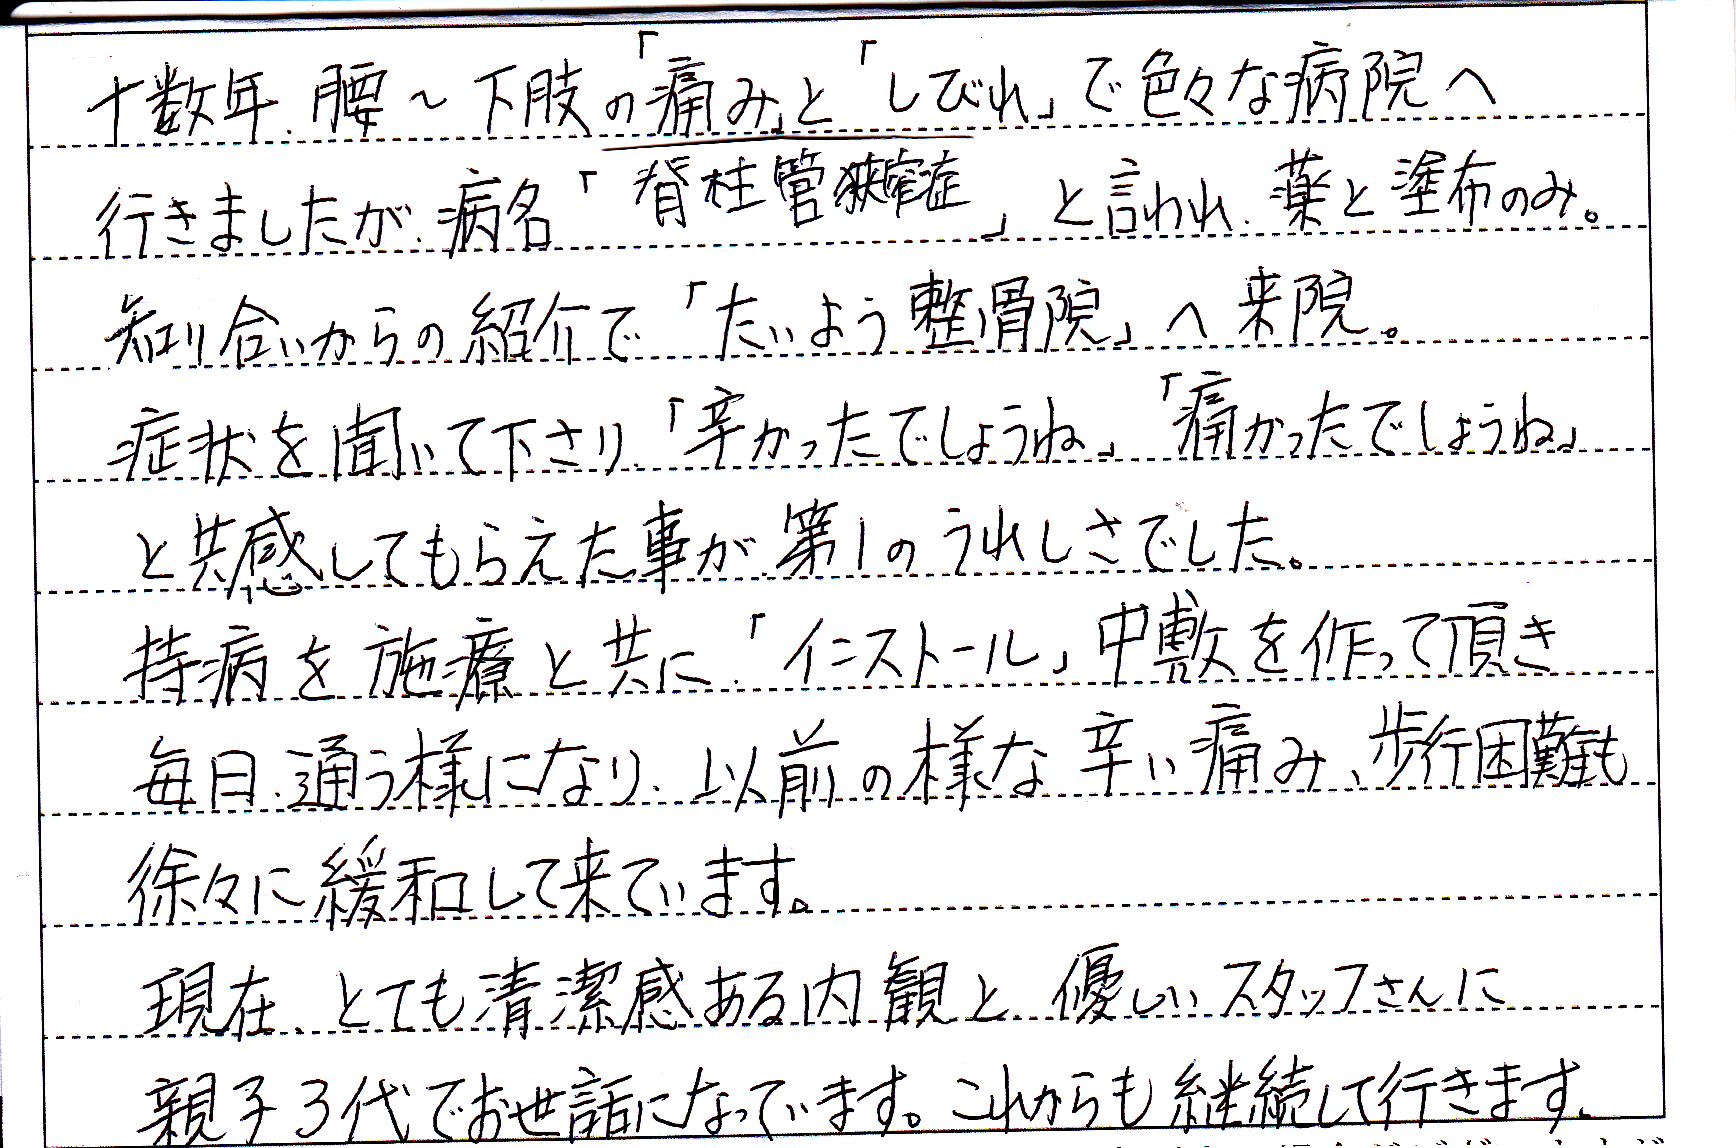 十数年、腰～下肢の「痛み」と「しびれ」で色々な病院へ
行きましたが、病名「脊柱管狭窄症」と言われ、薬と塗布のみ。
知り合いからの紹介で「たいよう整骨院」へ来院。
症状を聞いて下さり、「辛かったでしょうね」「痛かったでしょうね」
と共感してもらえた事が、第1のうれしさでした。
持病を施療と共に、「インストール」中敷を作って頂き
毎日、通う様になり、以前の様な辛い痛み、歩行困難も
徐々に緩和して来ています。
現在、とても清潔感ある内観と、優しいスタッフさんに
親子3代でお世話になっています。これからも継続して行きます。